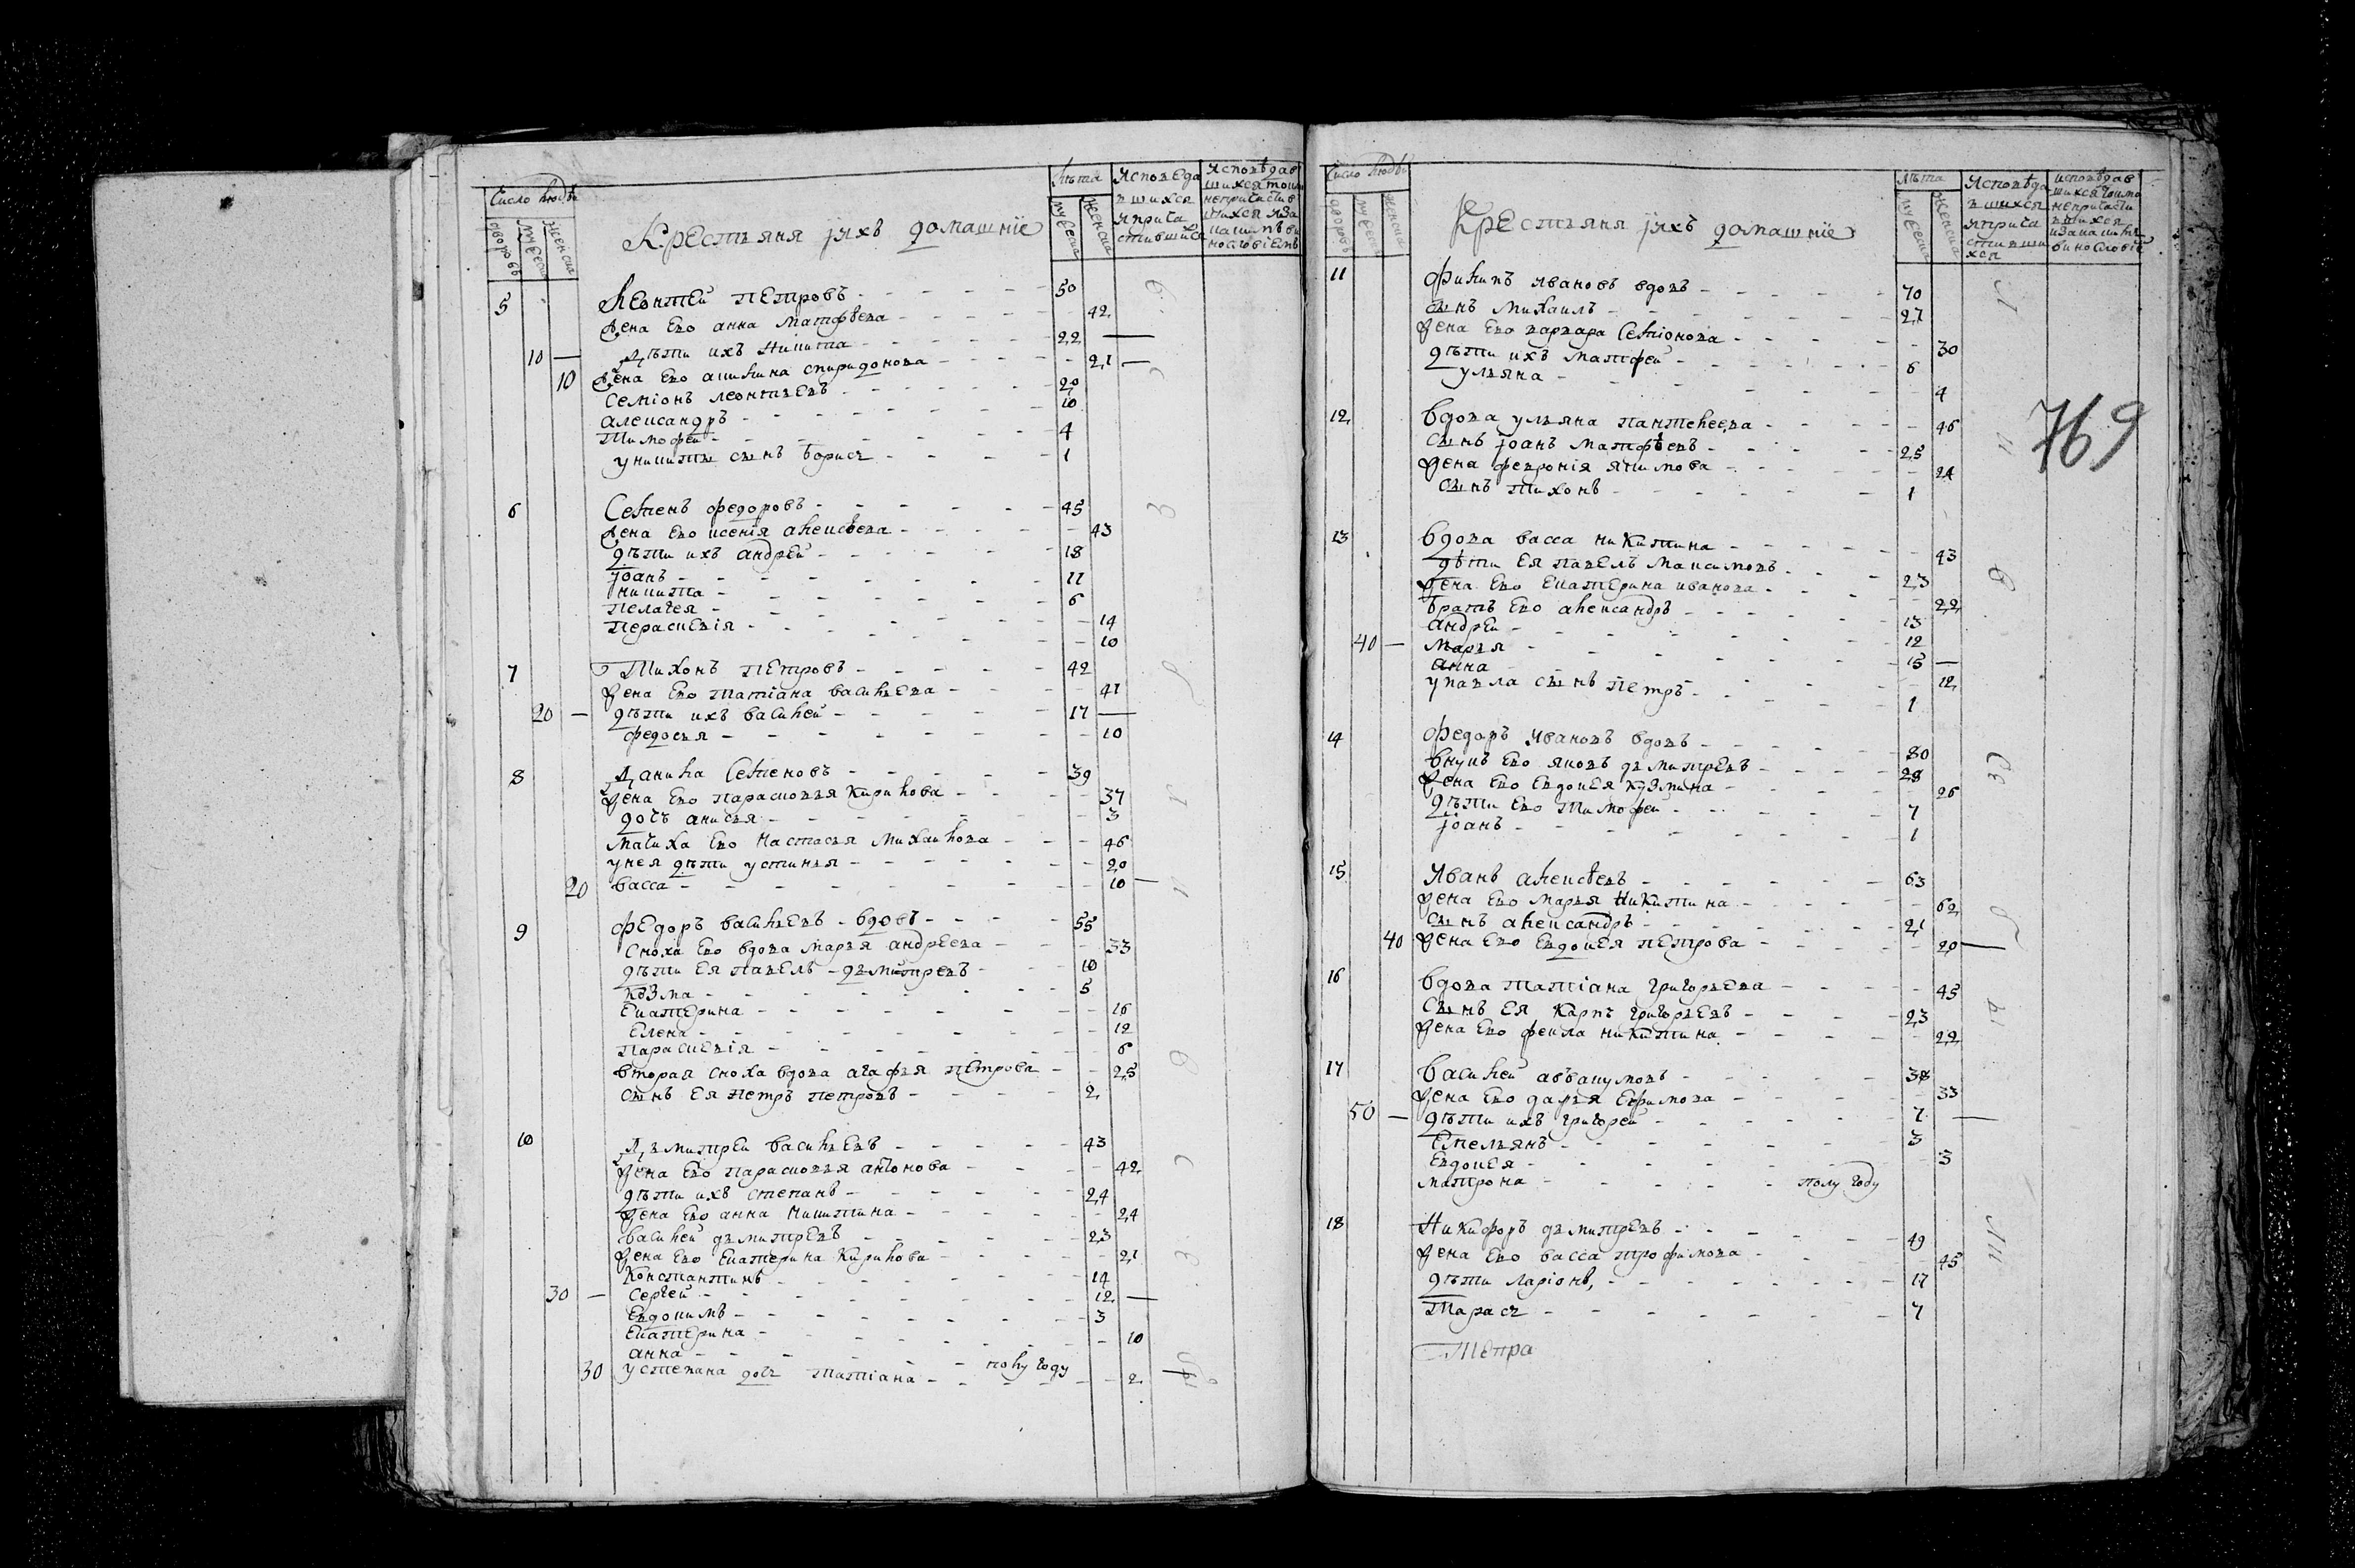 Число людѣй
дворовъ
мужеска
женска
Крестьяня їихъ домашнїе
Лѣта
мужеска
женска
Исповеда
вшихся
и прича
стившихся
Исповѣдав
шихся токмо
непричастив
шихся и за
какимъ ви
нословіемъ
5 Леонтей Петровъ - 50
жена ево анна Матфѣева - 42
10 — Дѣти ихъ Никита - 22 —
10 жена ево акилина спиридонова - 21 —
Семіонъ леонтьевъ - 20
александръ - 10
Тимофей - 4
у никиты сынъ Борисъ - 1
6 Семенъ федоровъ - 45
жена ево ксенія алексѣева - 43
дѣти ихъ андрей - 18
јоанъ - 11
никита - 6
пелагея - 14
перасковія - 10
7 Тихонъ Петровъ - 42
жена ево татіана васильева - 41
20 — дѣти ихъ василей - 17 —
федосья - 10
8 Данила Семеновъ - 39
жена ево парасковья Кирилова - 37
дочь анисья - 3
мачиха ево Настасья Михаилова - 46
у нея дѣти устинья - 20
20 васса - 10 —
9 Федоръ васильевъ - вдовъ - 55
сноха ево вдова марья андреева - 33
дѣти ея павелъ - дьмитревъ - 10
козма - 5
Екатерина - 16
Елена - 12
параскевія - 6
вторая сноха вдова агафья петрова - 25
сынъ ея петръ петровъ - 2
10 Дьмитрей васильевъ - 43
жена ево парасковья антонова - 42
дѣти ихъ степанъ - 24
жена ево анна Никитина - 24
василей дьмитревъ - 23
жена ево Екатерина Кирилова - 21
Константинъ - 14
30 — Сергей - 12 —
Евдокимъ - 3
Екатерина - 10
анна - 2
30 у степана дочь татіана - полу году
Число людѣй
дворовъ
мужеска
женска
Крестьяня їихъ домашнїе
Лѣта
мужеска
женска
Исповѣда
вшихся
и прича
стивши
хся
исповѣдав
шихся токмо
непричасти
вшихся
и за какимъ
винословіе
769
11 Филипъ Ивановъ вдовъ - 70
сынъ Михаилъ - 27
жена ево варвара Семіонова - 30
дѣти ихъ Матфей - 6
ульяна - 4
12 Вдова ульяна пантелеева - 46
сынъ јоанъ Матфѣевъ - 25
жена февронія якимова - 24
сынъ тихонъ - 1
13 Вдова васса никитина - 43
дѣти ея павелъ максимовъ - 23
жена ево екатерина иванова - 22
братъ ево александръ - 13
андрей - 12
40 — Марья - 15 —
анна - 12
у павла сынъ петръ - 1
14 Федоръ Ивановъ вдовъ - 80
внукъ ево яковъ дьмитревъ - 28
жена ево Евдокея кузмина - 26
дѣти ево Тимофей - 7
јоанъ - 1
15 Иванъ алексѣевъ - 63
жена ево марья Никитина - 62
сынъ александръ - 21
40 жена ево Евдокея петрова - 20 —
16 Вдова татіана григорьева - 45
Сынъ ея карпъ григорьевъ - 23
жена ево фекла никитина - 22
17 Василей аввакумовъ - 38
жена ево дарья Ефимова - 33
50 — дѣти ихъ григорей - 7 —
Емельянъ - 3
Евдокея - 3
матрона - полу году
18 Никифоръ дьмитревъ - 49
жена ево васса трофимова - 45
дѣти ларіонъ - 17
Тарасъ - 7